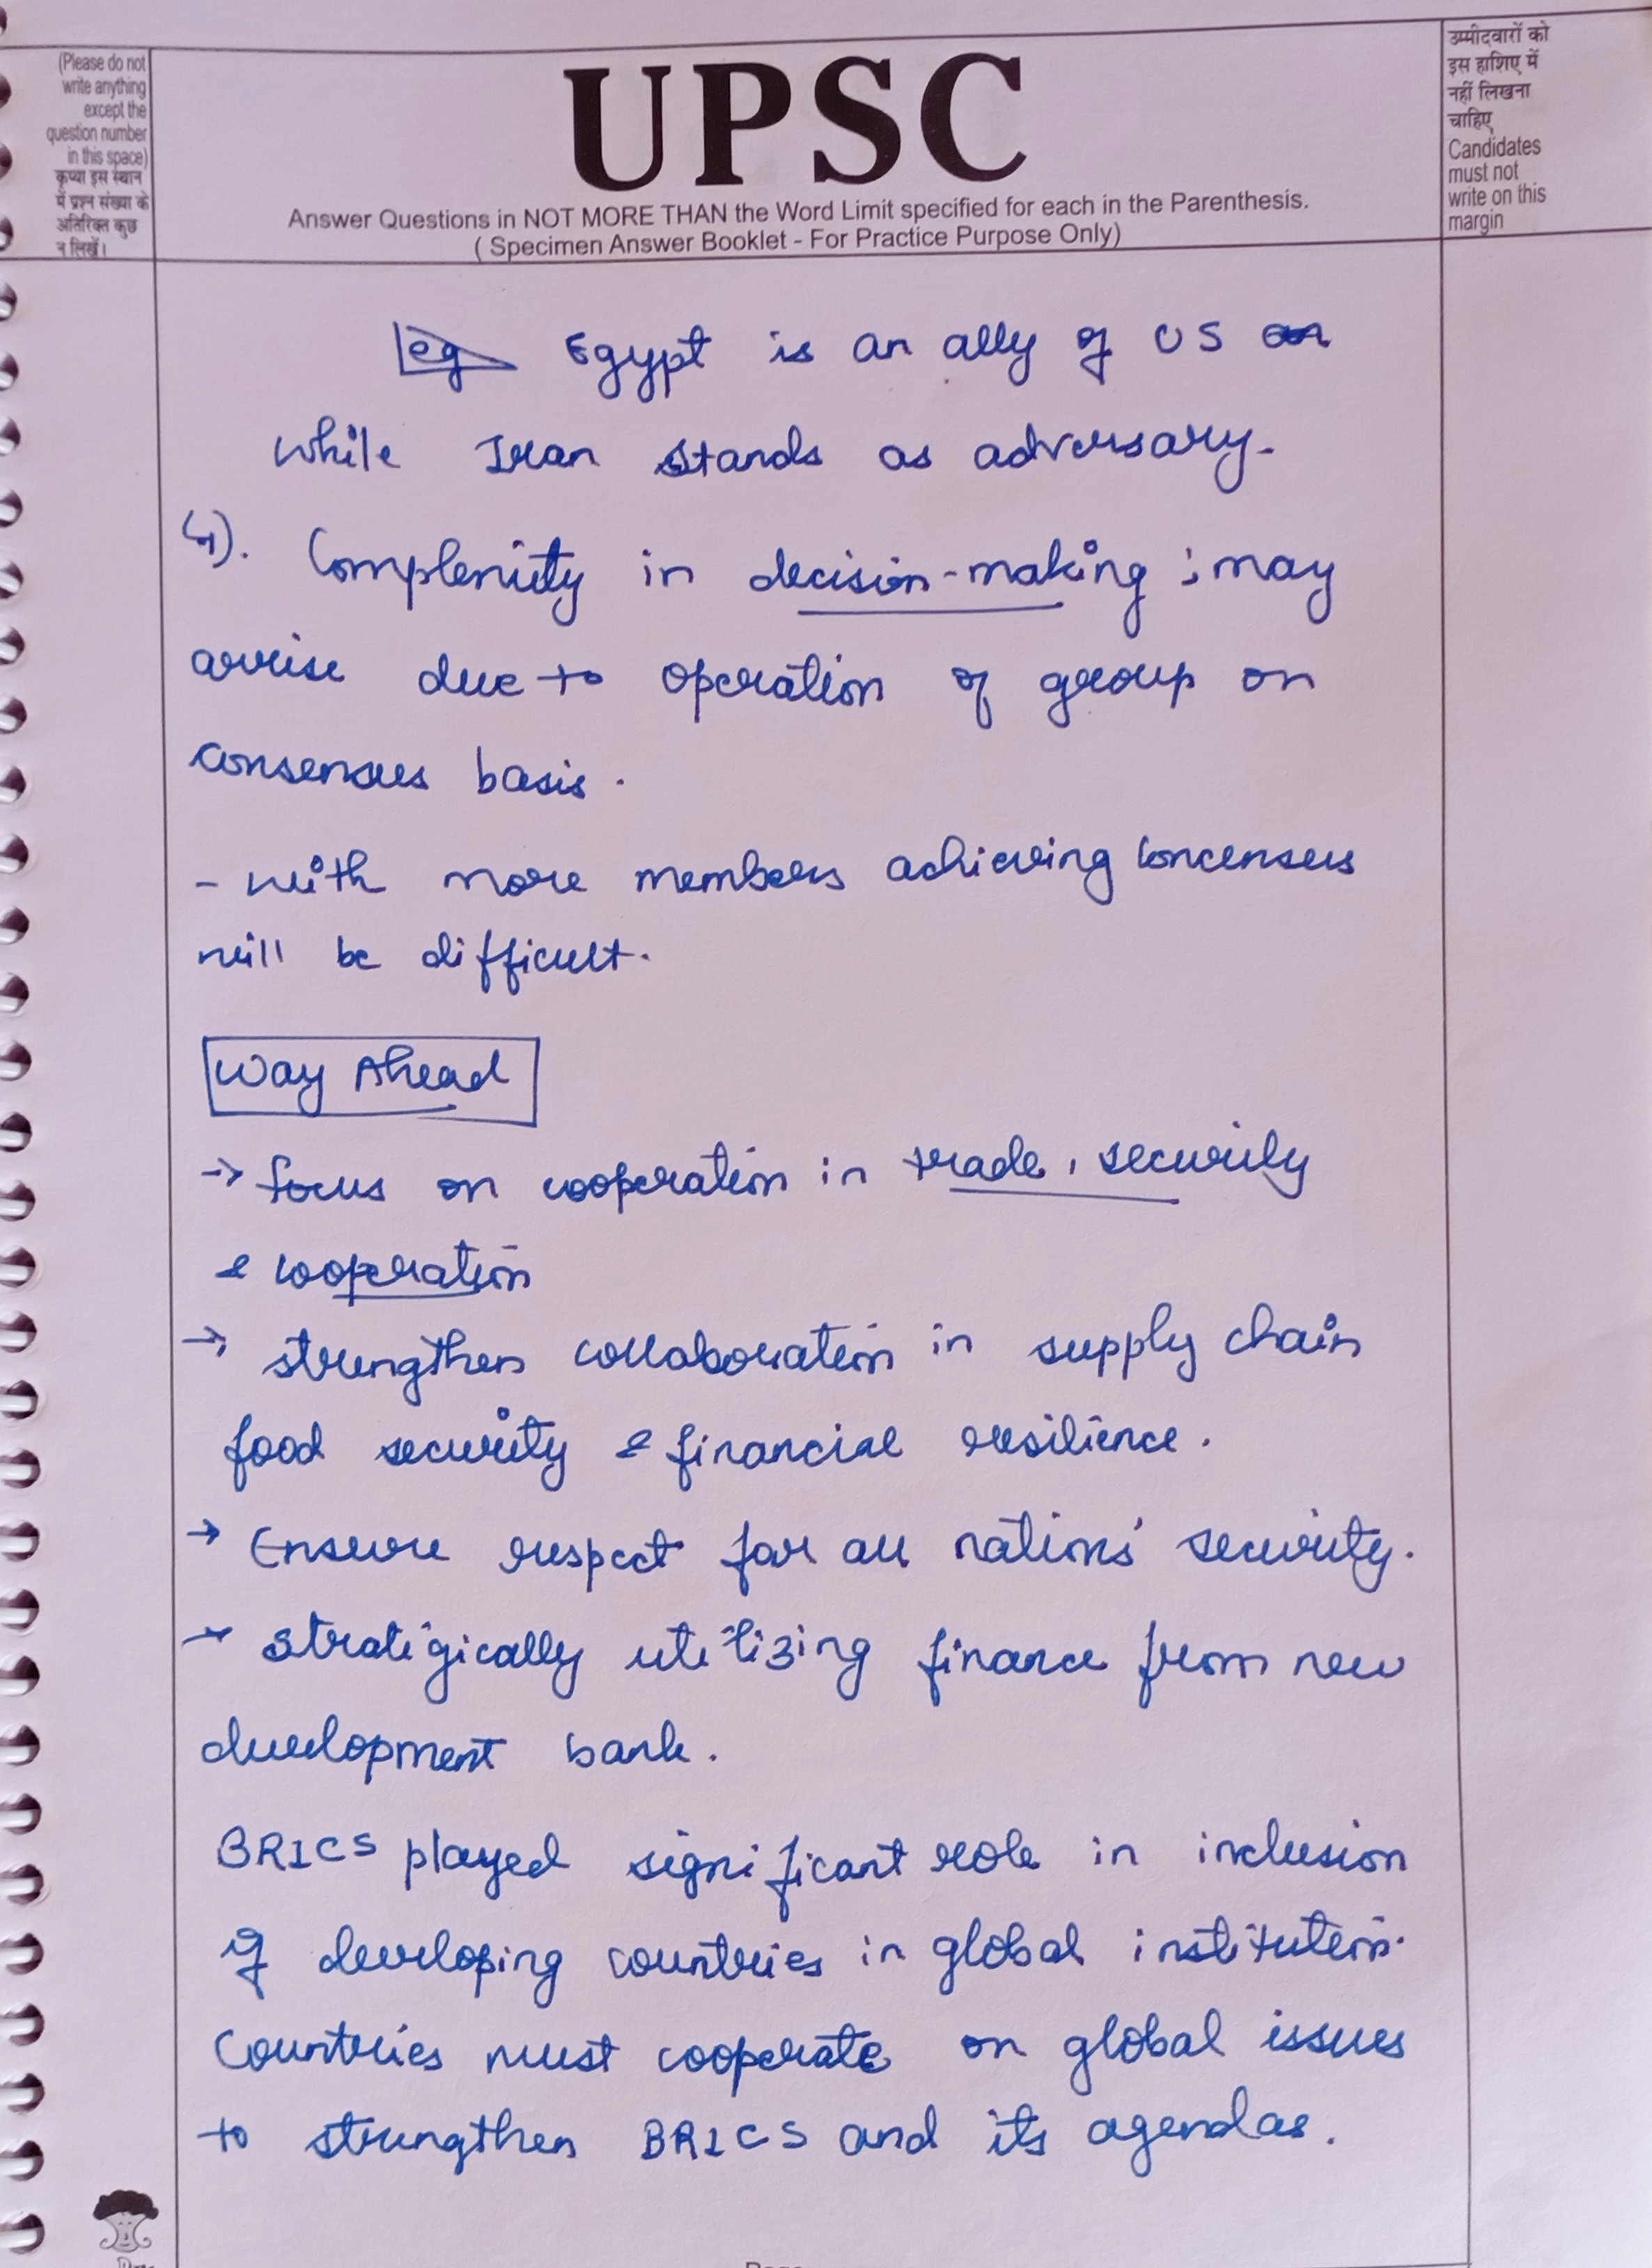 (Please do not
write anything
except the
question number
in this space)
कृप्या इस स्थान
में प्रश्न संख्या के
अतिरिक्त कुछ
न लिखें।
UPSC
Answer Questions in NOT MORE THAN the Word Limit specified for each in the Parenthesis.
( Specimen Answer Booklet - For Practice Purpose Only)
उम्मीदवारों को
इस हाशिए में
नहीं लिखना
चाहिए
Candidates
must not
write on this
margin
eg Egypt is an ally of US
while Iran stands as adversary.
4). Complexity in decision-making : may
arrise due to operation of group on
consensus basis.
- with more members achieving concensus
will be difficult.
Way Ahead
→ focus on cooperation in trade, security
& cooperation
→ strengthen collaboration in supply chain
food security & financial resilience.
→ Ensure respect for all nations' security.
→ strategically utilizing finance from new
development bank.
BRICS played significant role in inclusion
of developing countries in global institution.
Countries must cooperate on global issues
to strengthen BRICS and its agendas.